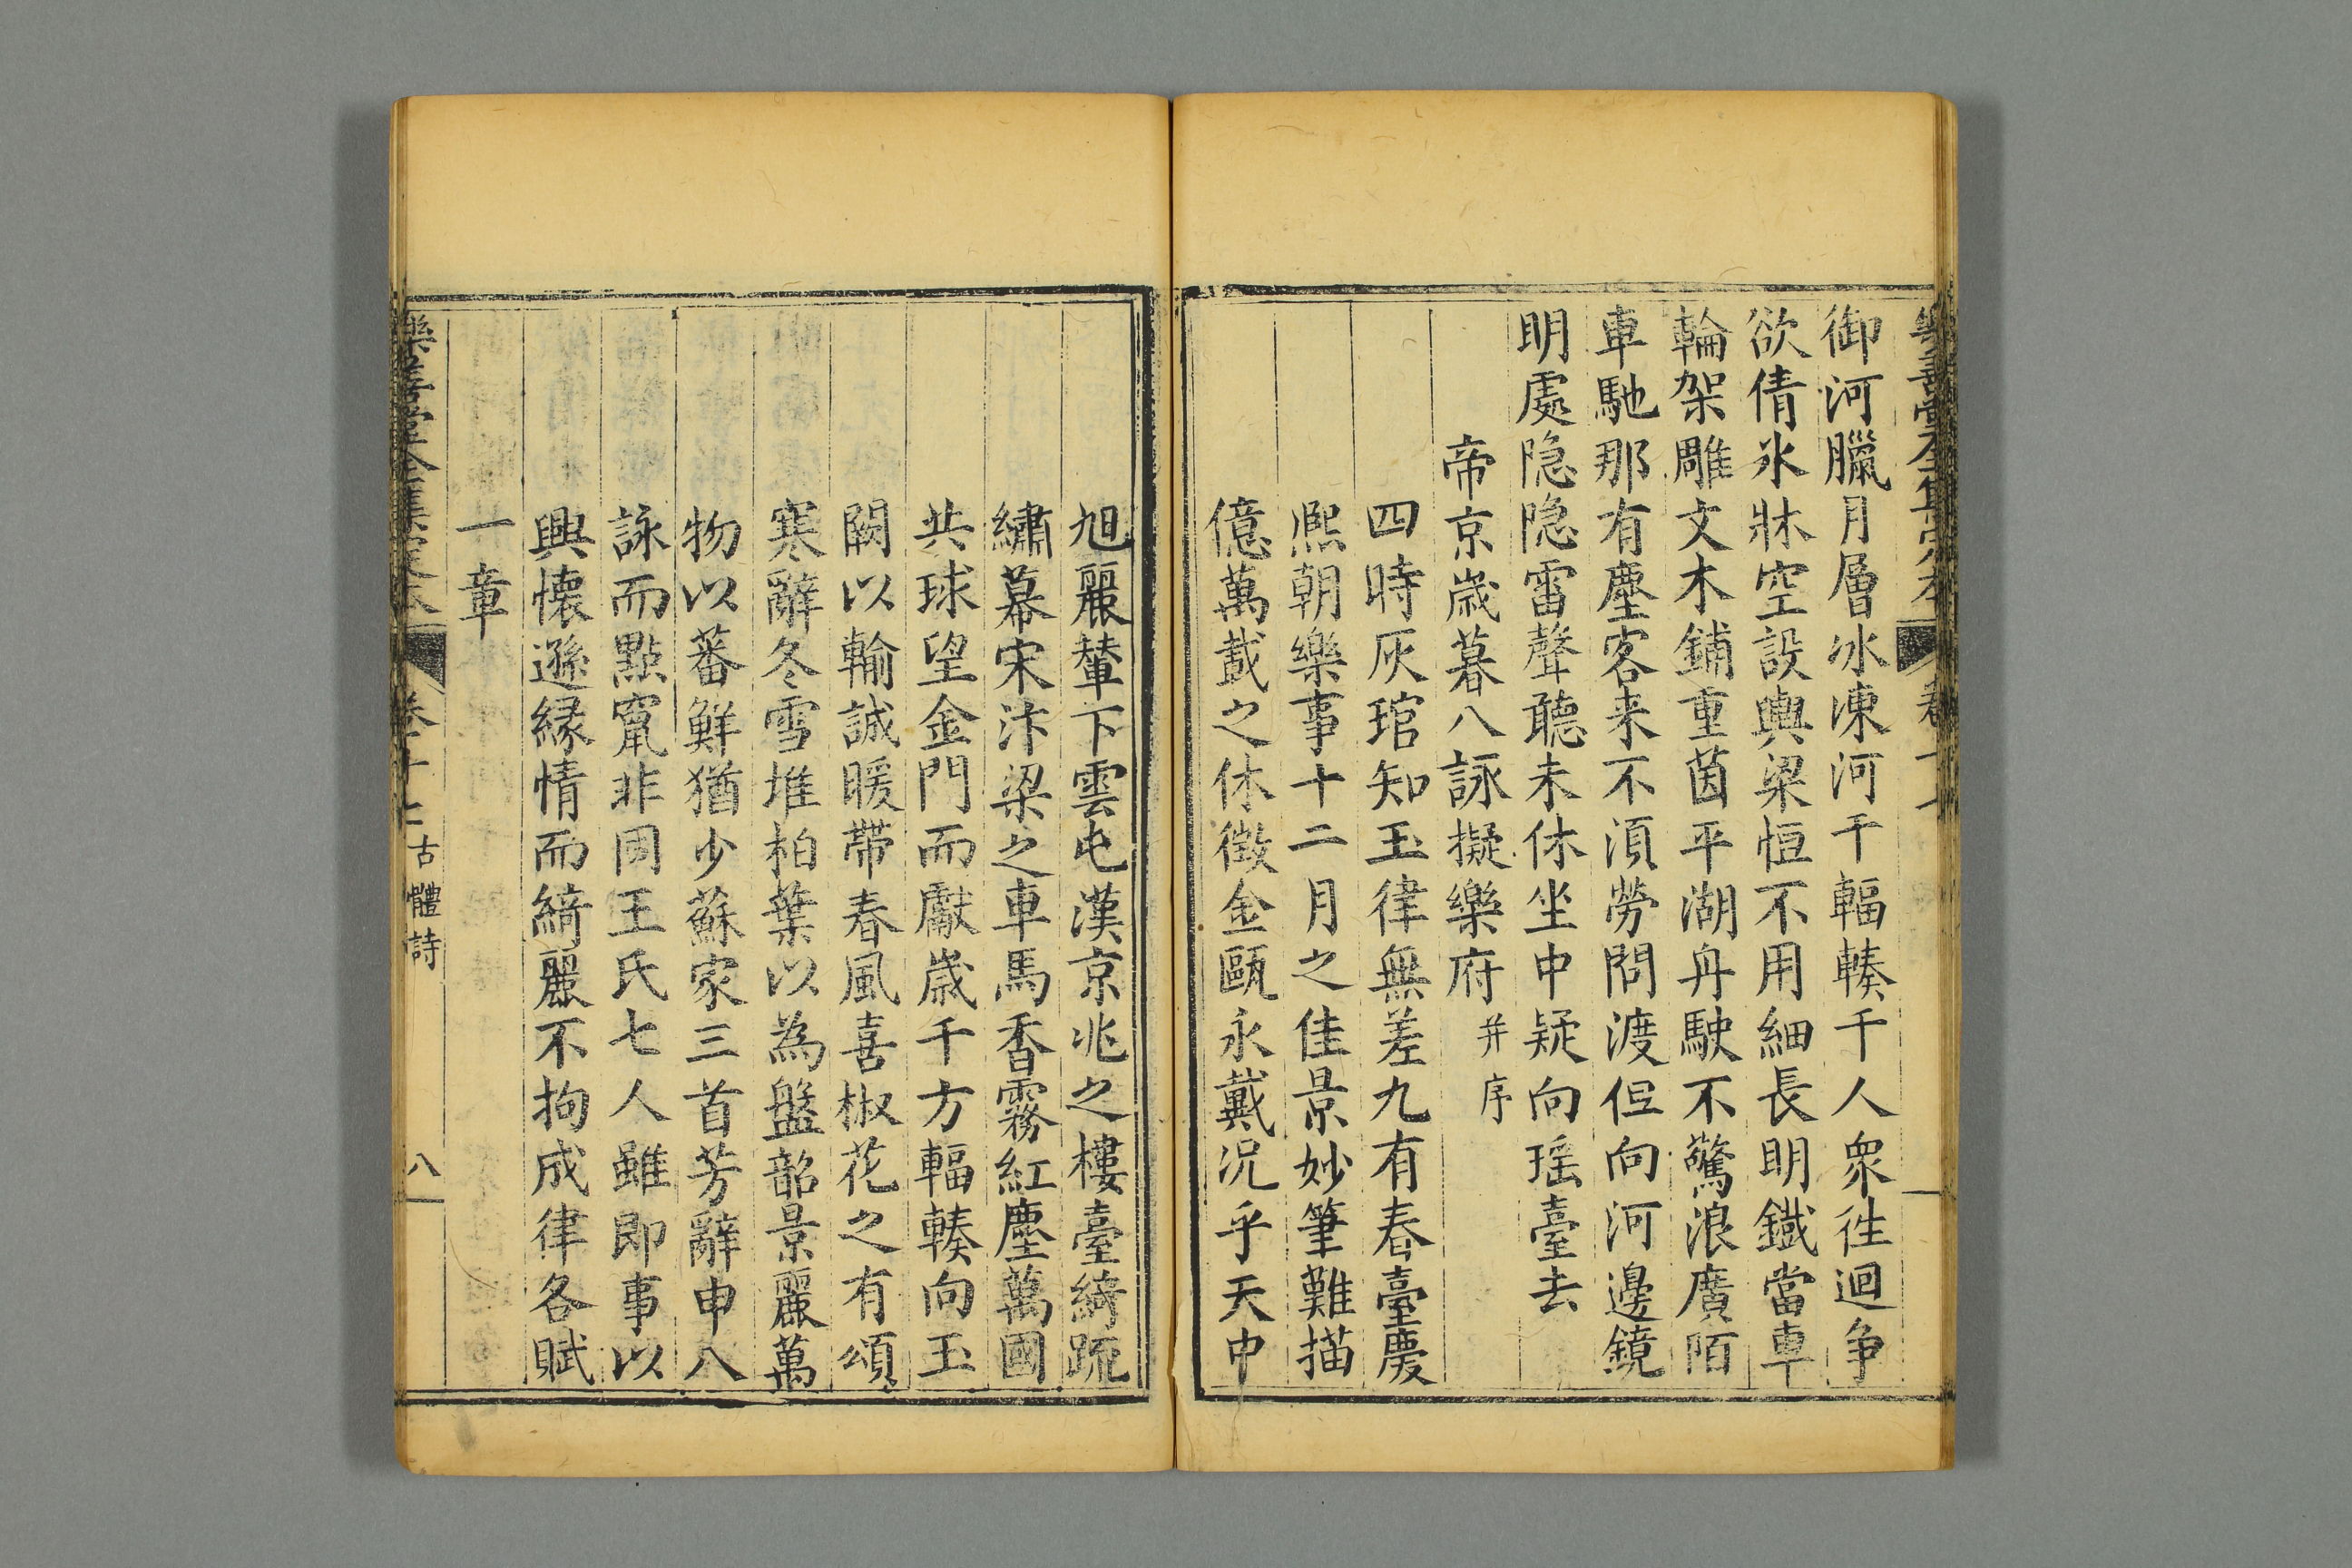 御河臘月層冰凍河干輻輳千人衆徃迴争
欲倩氷牀空設輿梁恒不用細長明鐵當車
輪架雕文木鋪重茵平湖舟駛不驚浪廣陌
車馳那有塵客来不湏勞問渡但向河邊鏡
明處隐隐雷聲聽未休坐中疑向瑶臺去
帝京歲暮八詠擬樂府并序
四時灰琯知玉律無差九有春臺慶
熈朝樂事十二月之佳景妙筆難描
億萬載之休徵金甌永戴况乎天中
旭麗輦下雲屯漢京兆之樓臺綺䟽
繡幕宋汴梁之車馬香霧紅塵萬國
共球望金門而獻歲千方輻輳向玉
闕以輸誠暖帶春風喜椒花之有頌
寒辭冬雪堆柏葉以為盤韶景麗萬
物以蕃鮮猶少蘇家三首芳辭申八
詠而點竄非同王氏七人雖即事以
興懷遜緣情而綺麗不拘成律各賦
一章
樂善堂全集定本 卷十二 古體詩 八